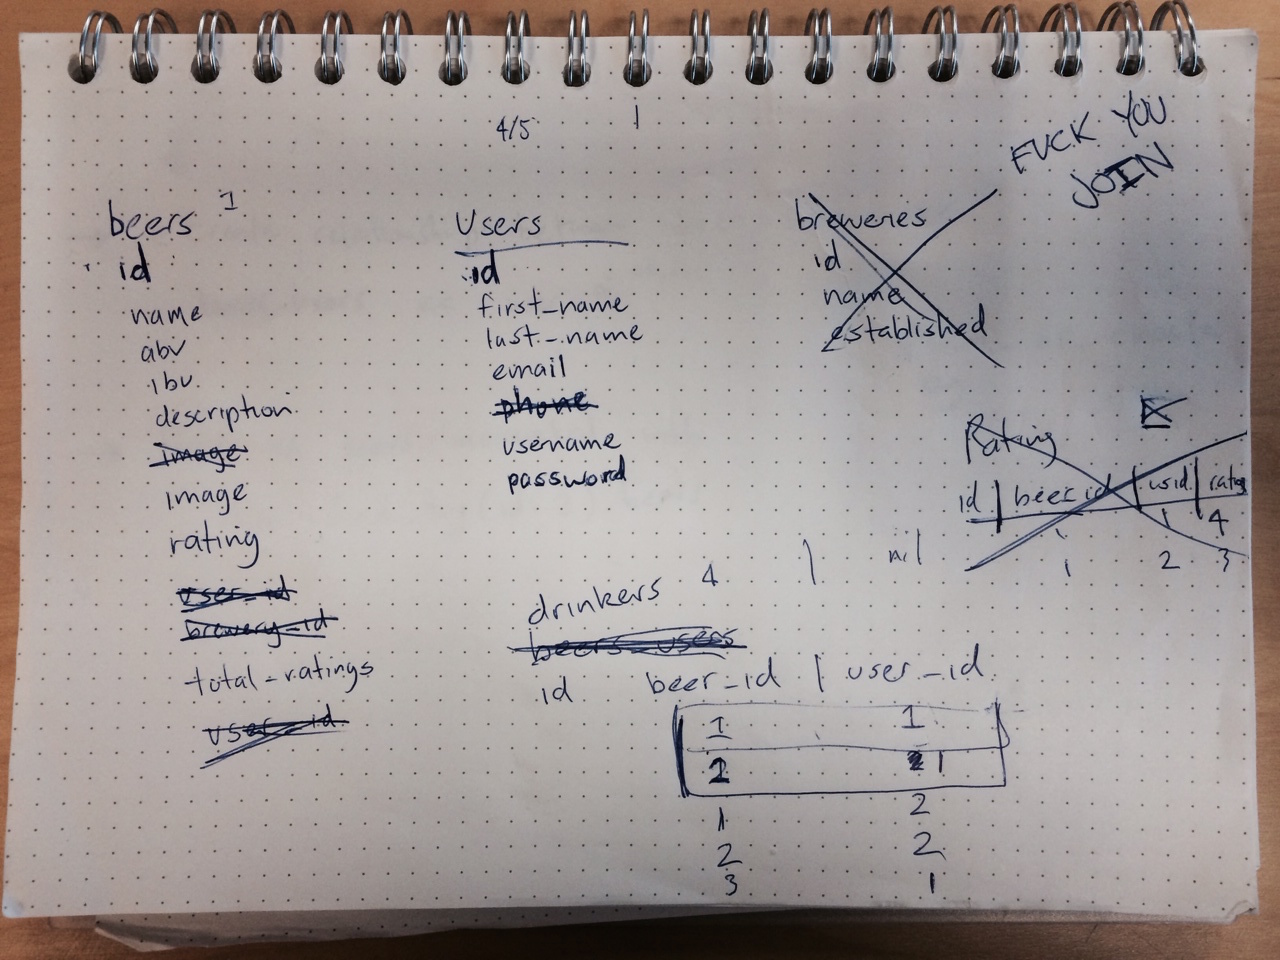 4/5
1
FUCK YOU
JOIN
beers 1
id
name
abv
ibu
description
image
image
rating
user_id
brewery_id
total_ratings
user_id
Users
id
first_name
last_name
email
phone
username
password
breweries
id
name
established
Rating
id | beer_id | usid | rating
1 4
1 2 3
drinkers 4
| nil
beers_users
id beer_id | user_id
1 1
1 1
1 2
2 2
3 1